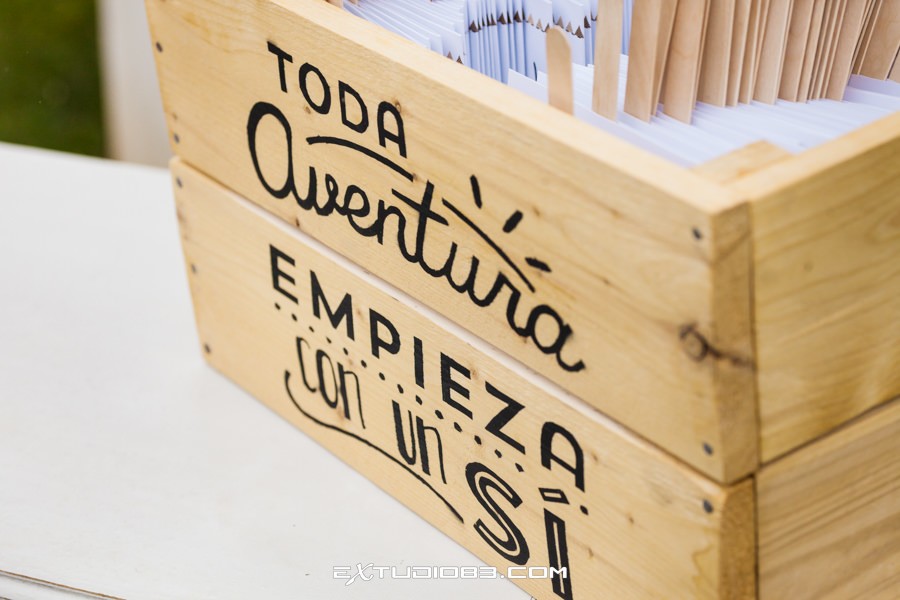 TODA
Aventura
EMPIEZA
con un SÍ
EXTUDIO83.COM